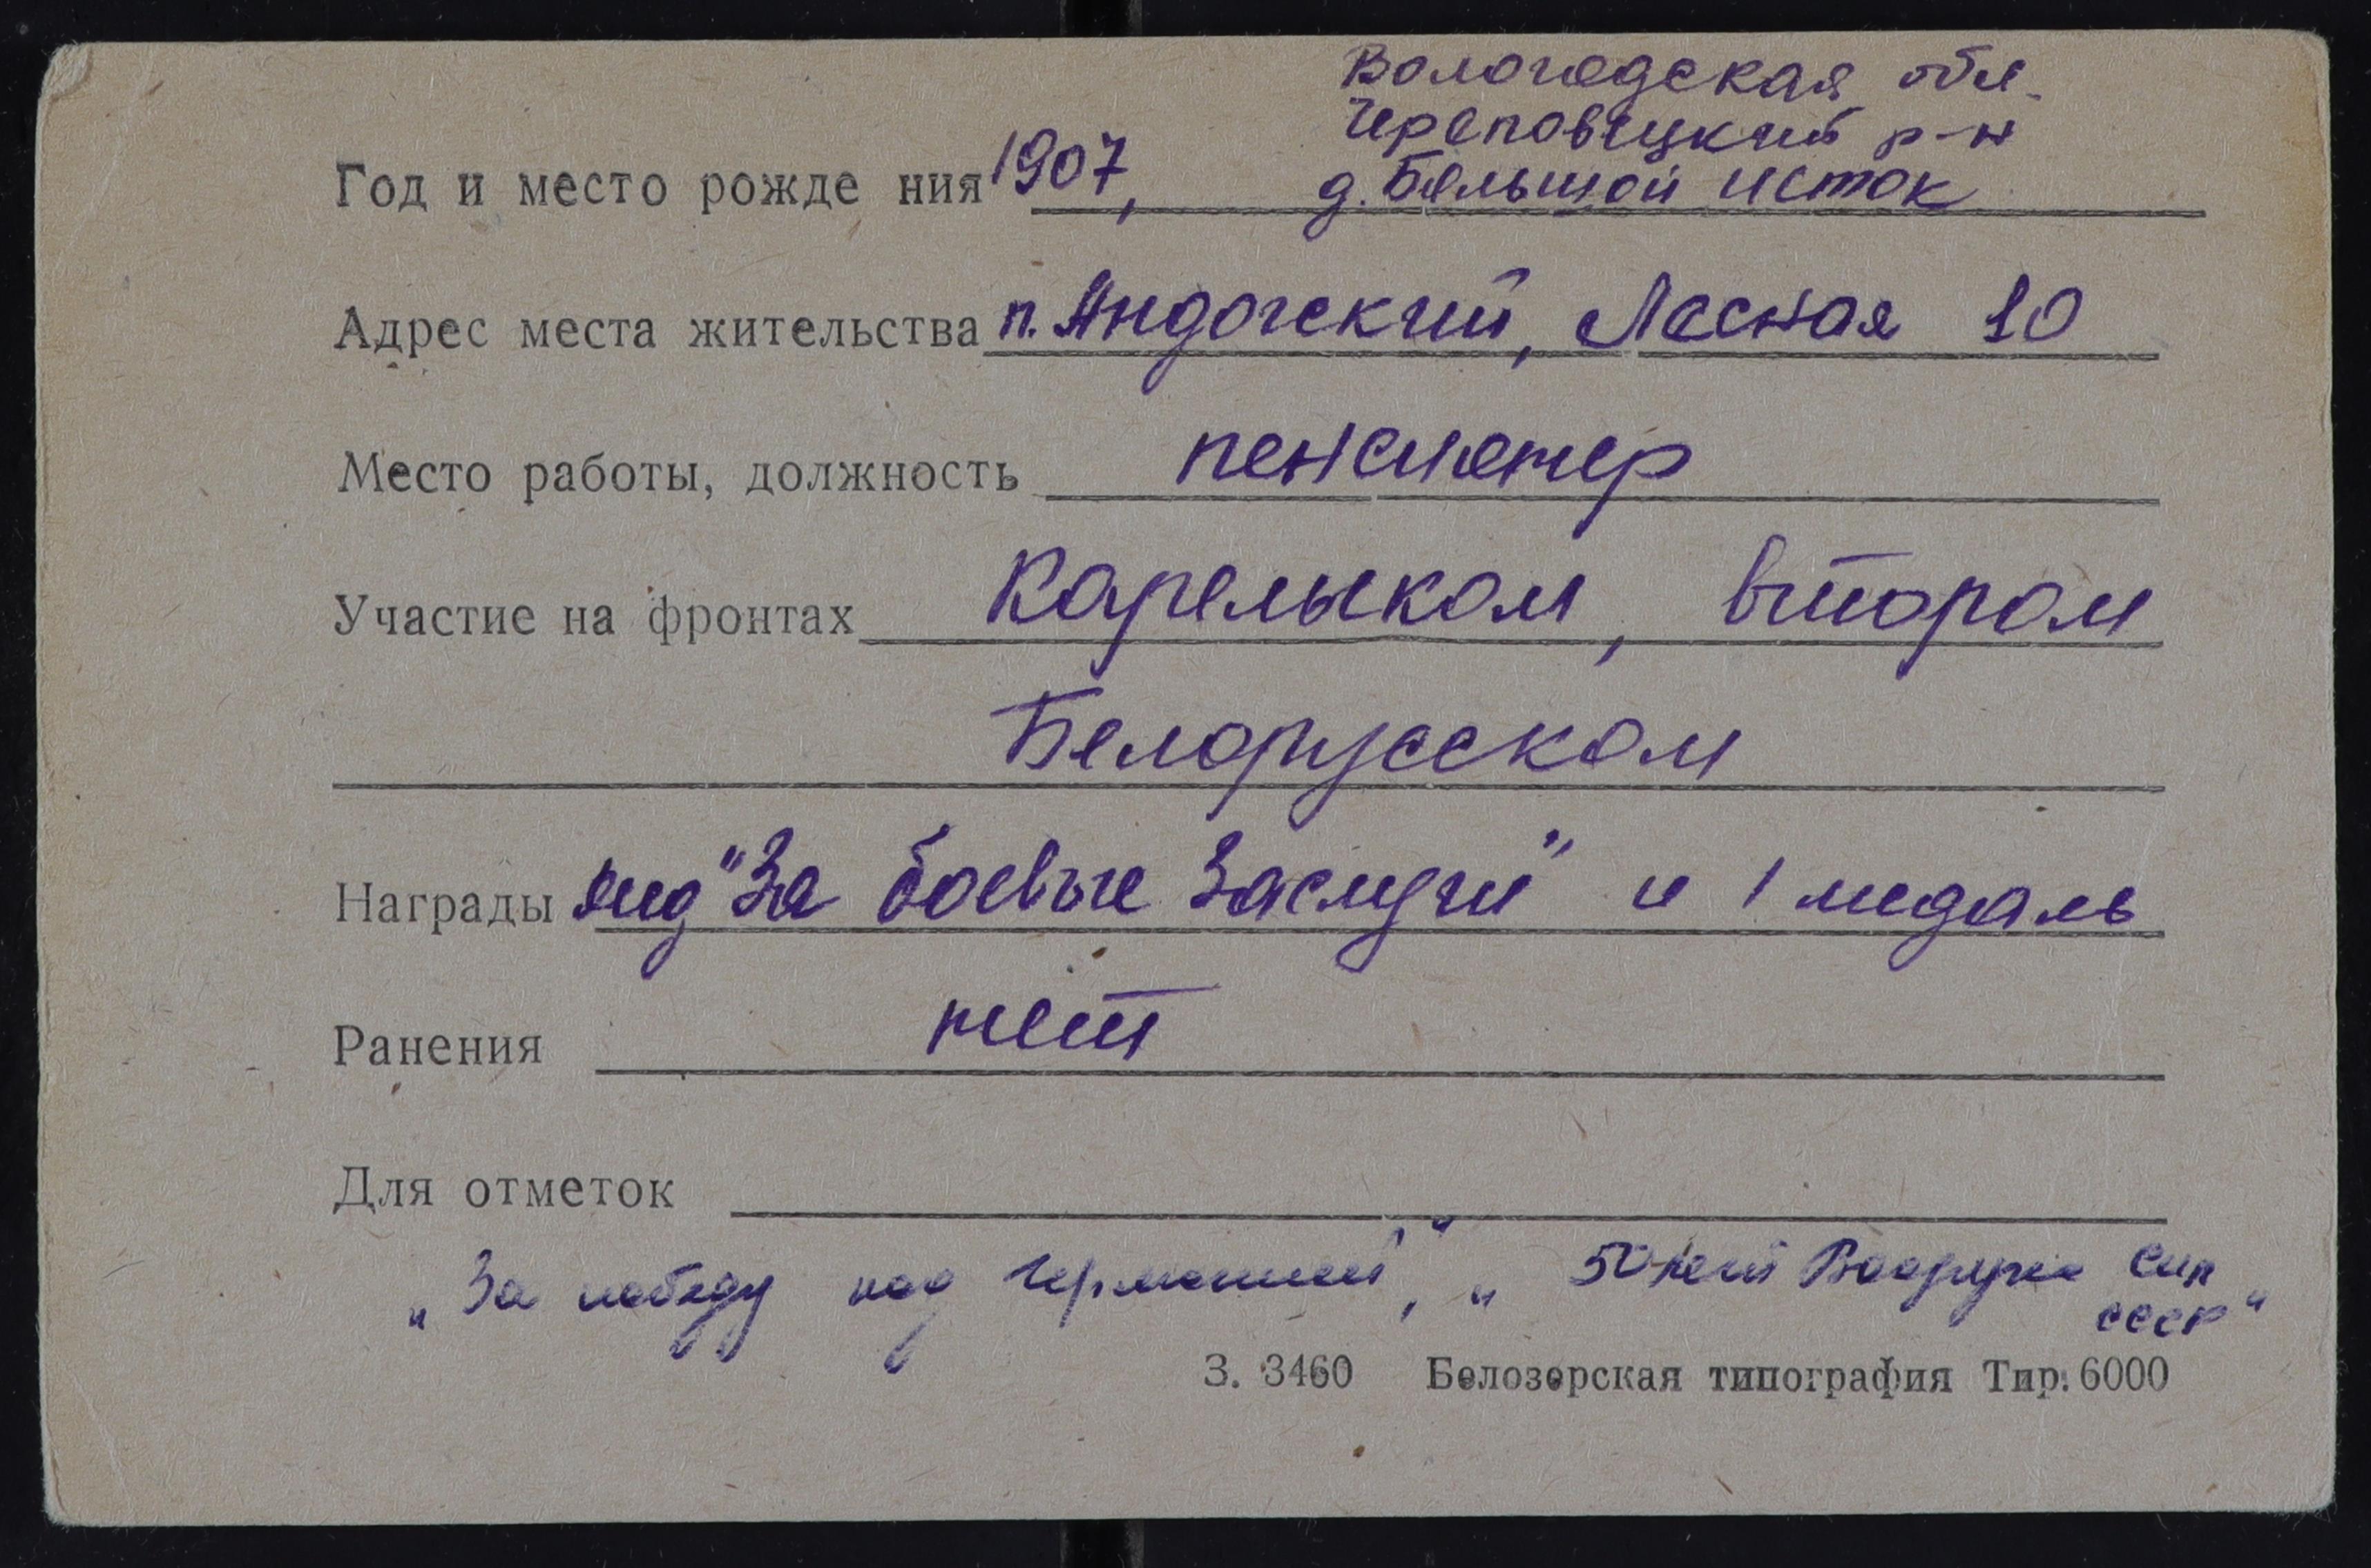 Вологодская обл.
Череповецкий р-н
Год и место рожде ния 1907, д. Большой Исток
Адрес места жительства п. Андогский, Лесная 10
Место работы, должность пенсионер
Участие на фронтах Карельком, втором
Белорусском
Награды мед "За боевые заслуги" и 1 медаль
Ранения нет
Для отметок
„За победу над Германией“, „50 лет Вооруж Сил
СССР“
З. 3460 Белозерская типография Тир. 6000